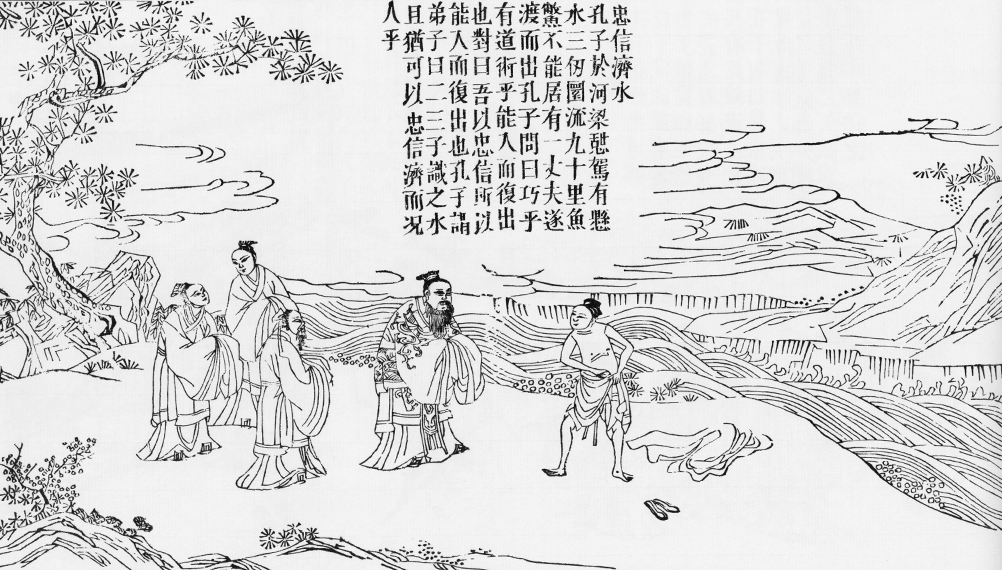 忠信濟水
孔子於河梁憩駕有懸
水三仞圜流九十里魚
鱉不能居有一丈夫遂
渡而出孔子問曰巧乎
有道術乎能入而復出
也對曰吾以忠信所以
能入而復出也孔子謂
弟子曰二三子識之水
且猶可以忠信濟而况
人乎